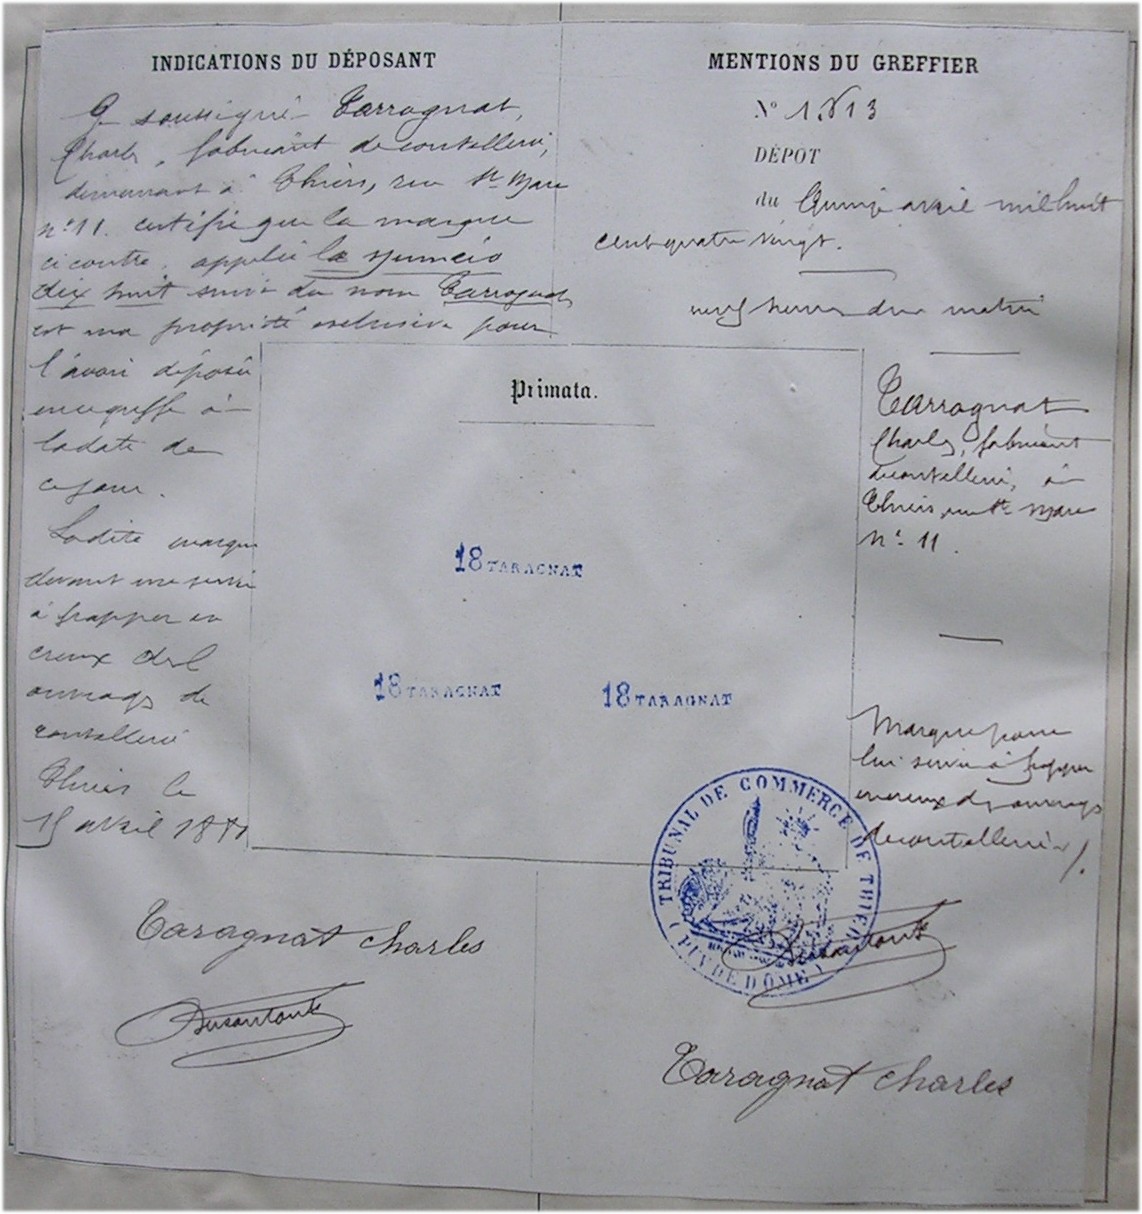 INDICATIONS DU DÉPOSANT
Je soussigné Tarragnat,
Charles, fabricant de coutellerie,
demeurant à Thiers, rue St Marc
n° 11. certifie que la marque
ci contre, appelée le numéro
dix huit suivi du nom Tarragnat
est ma propriété exclusive pour
l'avoir déposée
en ce greffe à
la date de
ce jour.
Ladite marque
devant me servir
à frapper en
creux des
ouvrages de
coutellerie
Thiers le
15 avril
Taragnat Charles
Primata.
18 TARAGNAT
18 TARAGNAT
18 TARAGNAT
MENTIONS DU GREFFIER
N° 1813
DÉPOT
du Quinze avril mil huit
cent quatre vingt.
neuf heures du matin
Tarragnat
Charles, fabricant
de coutellerie, à
Thiers, rue St Marc
n° 11.
Marque pour
lui servir à frapper
en creux des ouvrages
de coutellerie
TRIBUNAL DE COMMERCE DE THIERS
(PUY DE DÔME)
Taragnat Charles